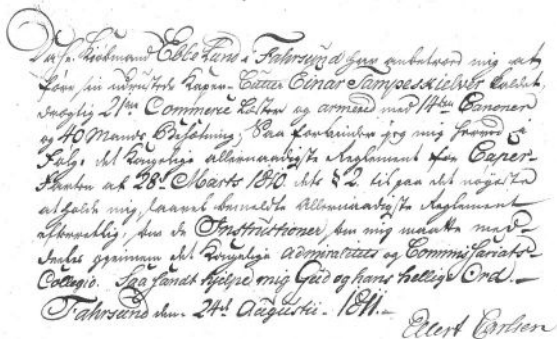 Da Hr. Kiøbmand Ebbe Lund i Fahrsund har anbetroed mig at
føre sin udrustede Kaper-Cutter Einar Tampeskielver kaldet,
drægtig 21 Commerce Læster og armered med 14 Canoner
og 40 Mands Besætning, Saa forbinder jeg mig herved i
Følge det Kongelige allernaadigste Reglement for Caper-
Farten af 28de Marts 1810. dets § 2. til paa det nøyeste
at holde mig, saavel bemeldte Allernaadigste Reglement
efterrettelig, som de Instructioner, som mig maatte med-
deeles gjennem det Kongelige Admiralitets og Commissariats-
Collegio. Saa sandt hjelpe mig Gud og hans hellige Ord.-
Fahrsund den 24de Augustii. 1811.-
Ellert Carlsen